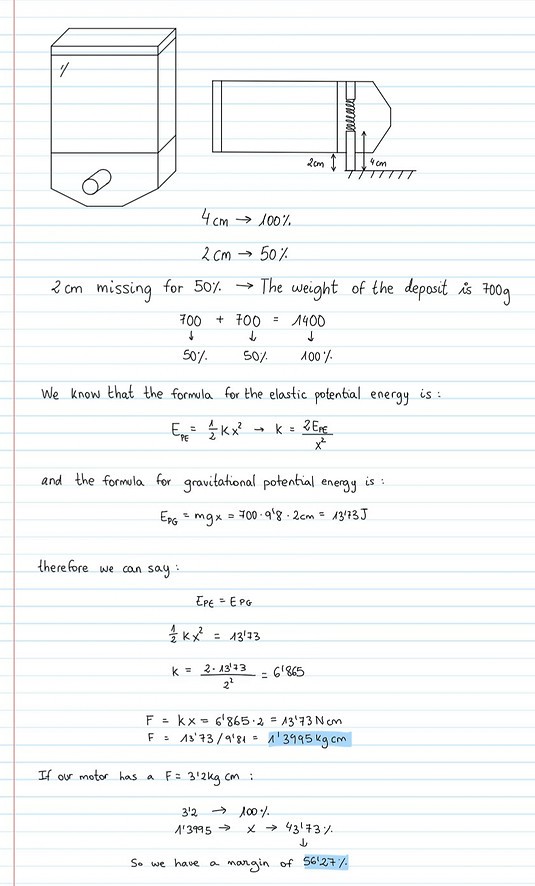 2cm
4cm
4cm → 100%
2cm → 50%
2cm missing for 50% → The weight of the deposit is 700g
700 + 700 = 1400
↓ ↓ ↓
50% 50% 100%
We know that the formula for the elastic potential energy is :
E_PE = 1/2 K x² → k = 2E_PE / x²
and the formula for gravitational potential energy is :
E_PG = mgx = 700·9'8·2cm = 13'73J
therefore we can say :
E_PE = E_PG
1/2 K x² = 13'73
k = 2·13'73 / 2² = 6'865
F = kx = 6'865·2 = 13'73 N cm
F = 13'73/9'81 = 1'3995 kg cm
If our motor has a F = 3'2kg cm :
3'2 → 100%
1'3995 → x → 43'73%
↓
So we have a margin of 56'27%